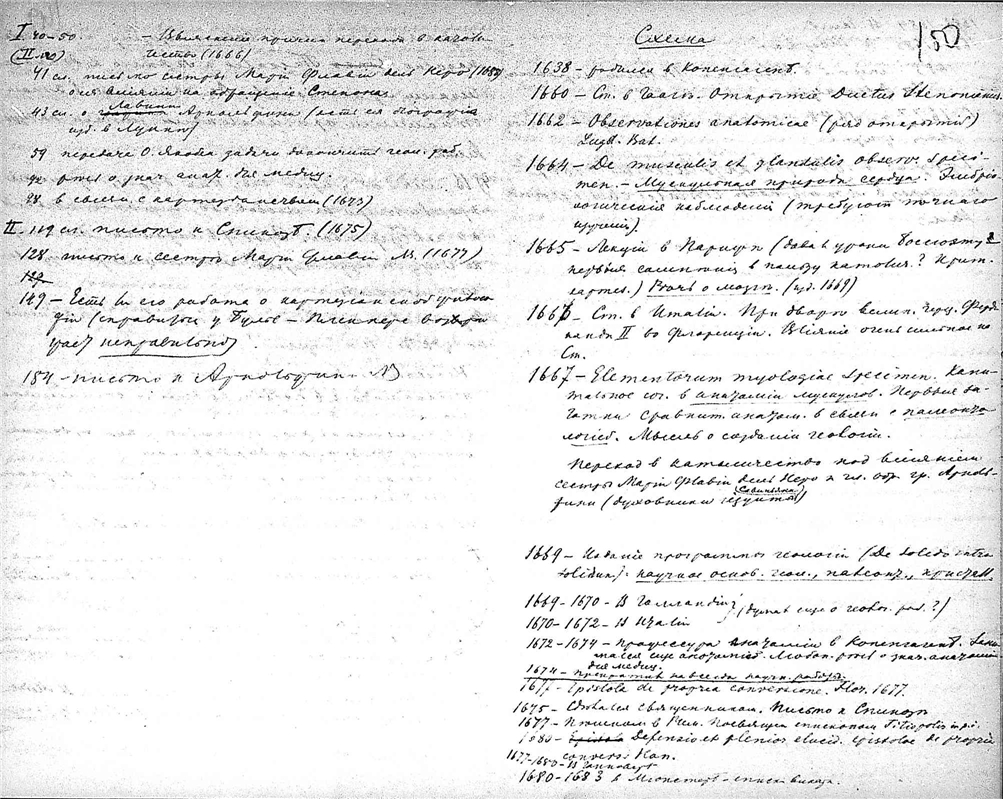 I 40-50. — Выяснение причин перехода в католи-
(II 110) чество (1666)
41 сл. письмо сестры Марiи Флавiи дель Неро
о ея влiянии на обращенiе Стенона
43 сл. о Лавинии Арнольфини (есть ея бiографiя
изд. в Лукки)
59 передаче О. Якоба задачи докончить геол. раб.
речь о знач. анат. для медиц.
в связи с картезианством (1673)
II. 119 сл. письмо к Спинозе. (1675)
128 письмо к сестре Марiи Флавiи (1677)
149 — Есть ли его работа о картезианской филосо-
фiи (справиться у
неправильно)
184 — письмо к Арнольфини
150
Схема
1638 — родился в Копенгагене.
1660 — Ст. в Гааге. Открытiе Ductus Stenonianus.
1662 — Observationes anatomicae (ряд открытiй)
Lugd. Bat.
1664 — De musculis et glandulis observ. speci-
men. — Мускульная природа сердца. Эмбрiо-
логическiя наблюденiя (требуют точнаго
изученiя).
1665 — Лекцiи в Париже (давал уроки Боссюэту и
первыя симпатiи в пользу католич.? Крит.
картез.) Речь о мозге. (изд. 1669)
1666 — Ст. в Италiи. При дворе велик. герц. Ферди-
нанда II во Флоренцiи. Влiянiе очень сильное на
Ст.
1667 — Elementorum myologiae specimen. Капи-
тальное соч. в анатомiи мускулов. Первые за-
чатки сравнит. анатом. в связи с палеонто-
логiей. Мысль о созданiи геологiи.
Переход в католичество под влiянiем
сестры Марiи Флавiи дель Неро и гл. обр. гр. Арноль-
фини (духовники iезуиты)
Савиньяни
1669 — Изданiе программы геологiи (De solido intra
solidum): научное основ. геол., палеонт., кристалл.
1669-1670 — В Голландiи
1670-1672 — В Италiи
(думал еще о геолог. раб.?)
1672-1674 — Профессура анатомiи в Копенгагене. Зани-
мался еще анатомiей. Любоп. речь о знач. анатомiи
для медиц.
1674 — прекратив навсегда научн. работы
1677 — Epistola de propria conversione. Flor. 1677.
1675 — Сделался священником. Письмо к Спинозе
1677 — Посвящен епископом Titiopolis i.p.i.
1680 — Epistola Defensio et plenior elucid. epistolae de propria
convers. Han.
1677-1680 — В Ганновере
1680-1683 в Мюнстере —